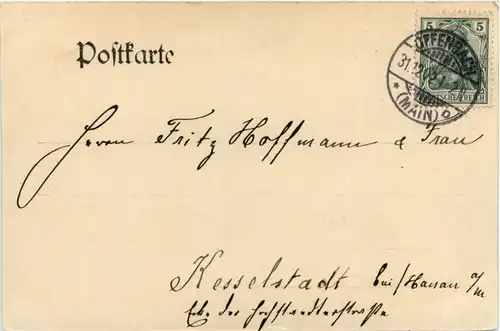 Postkarte
5 5
DEUTSCHES REICH
OFFENBACH
31.12.02
* (MAIN)
Herrn Fritz Hoffmann & Frau
Kesselstadt bei/Hanau a/m
Ecke der